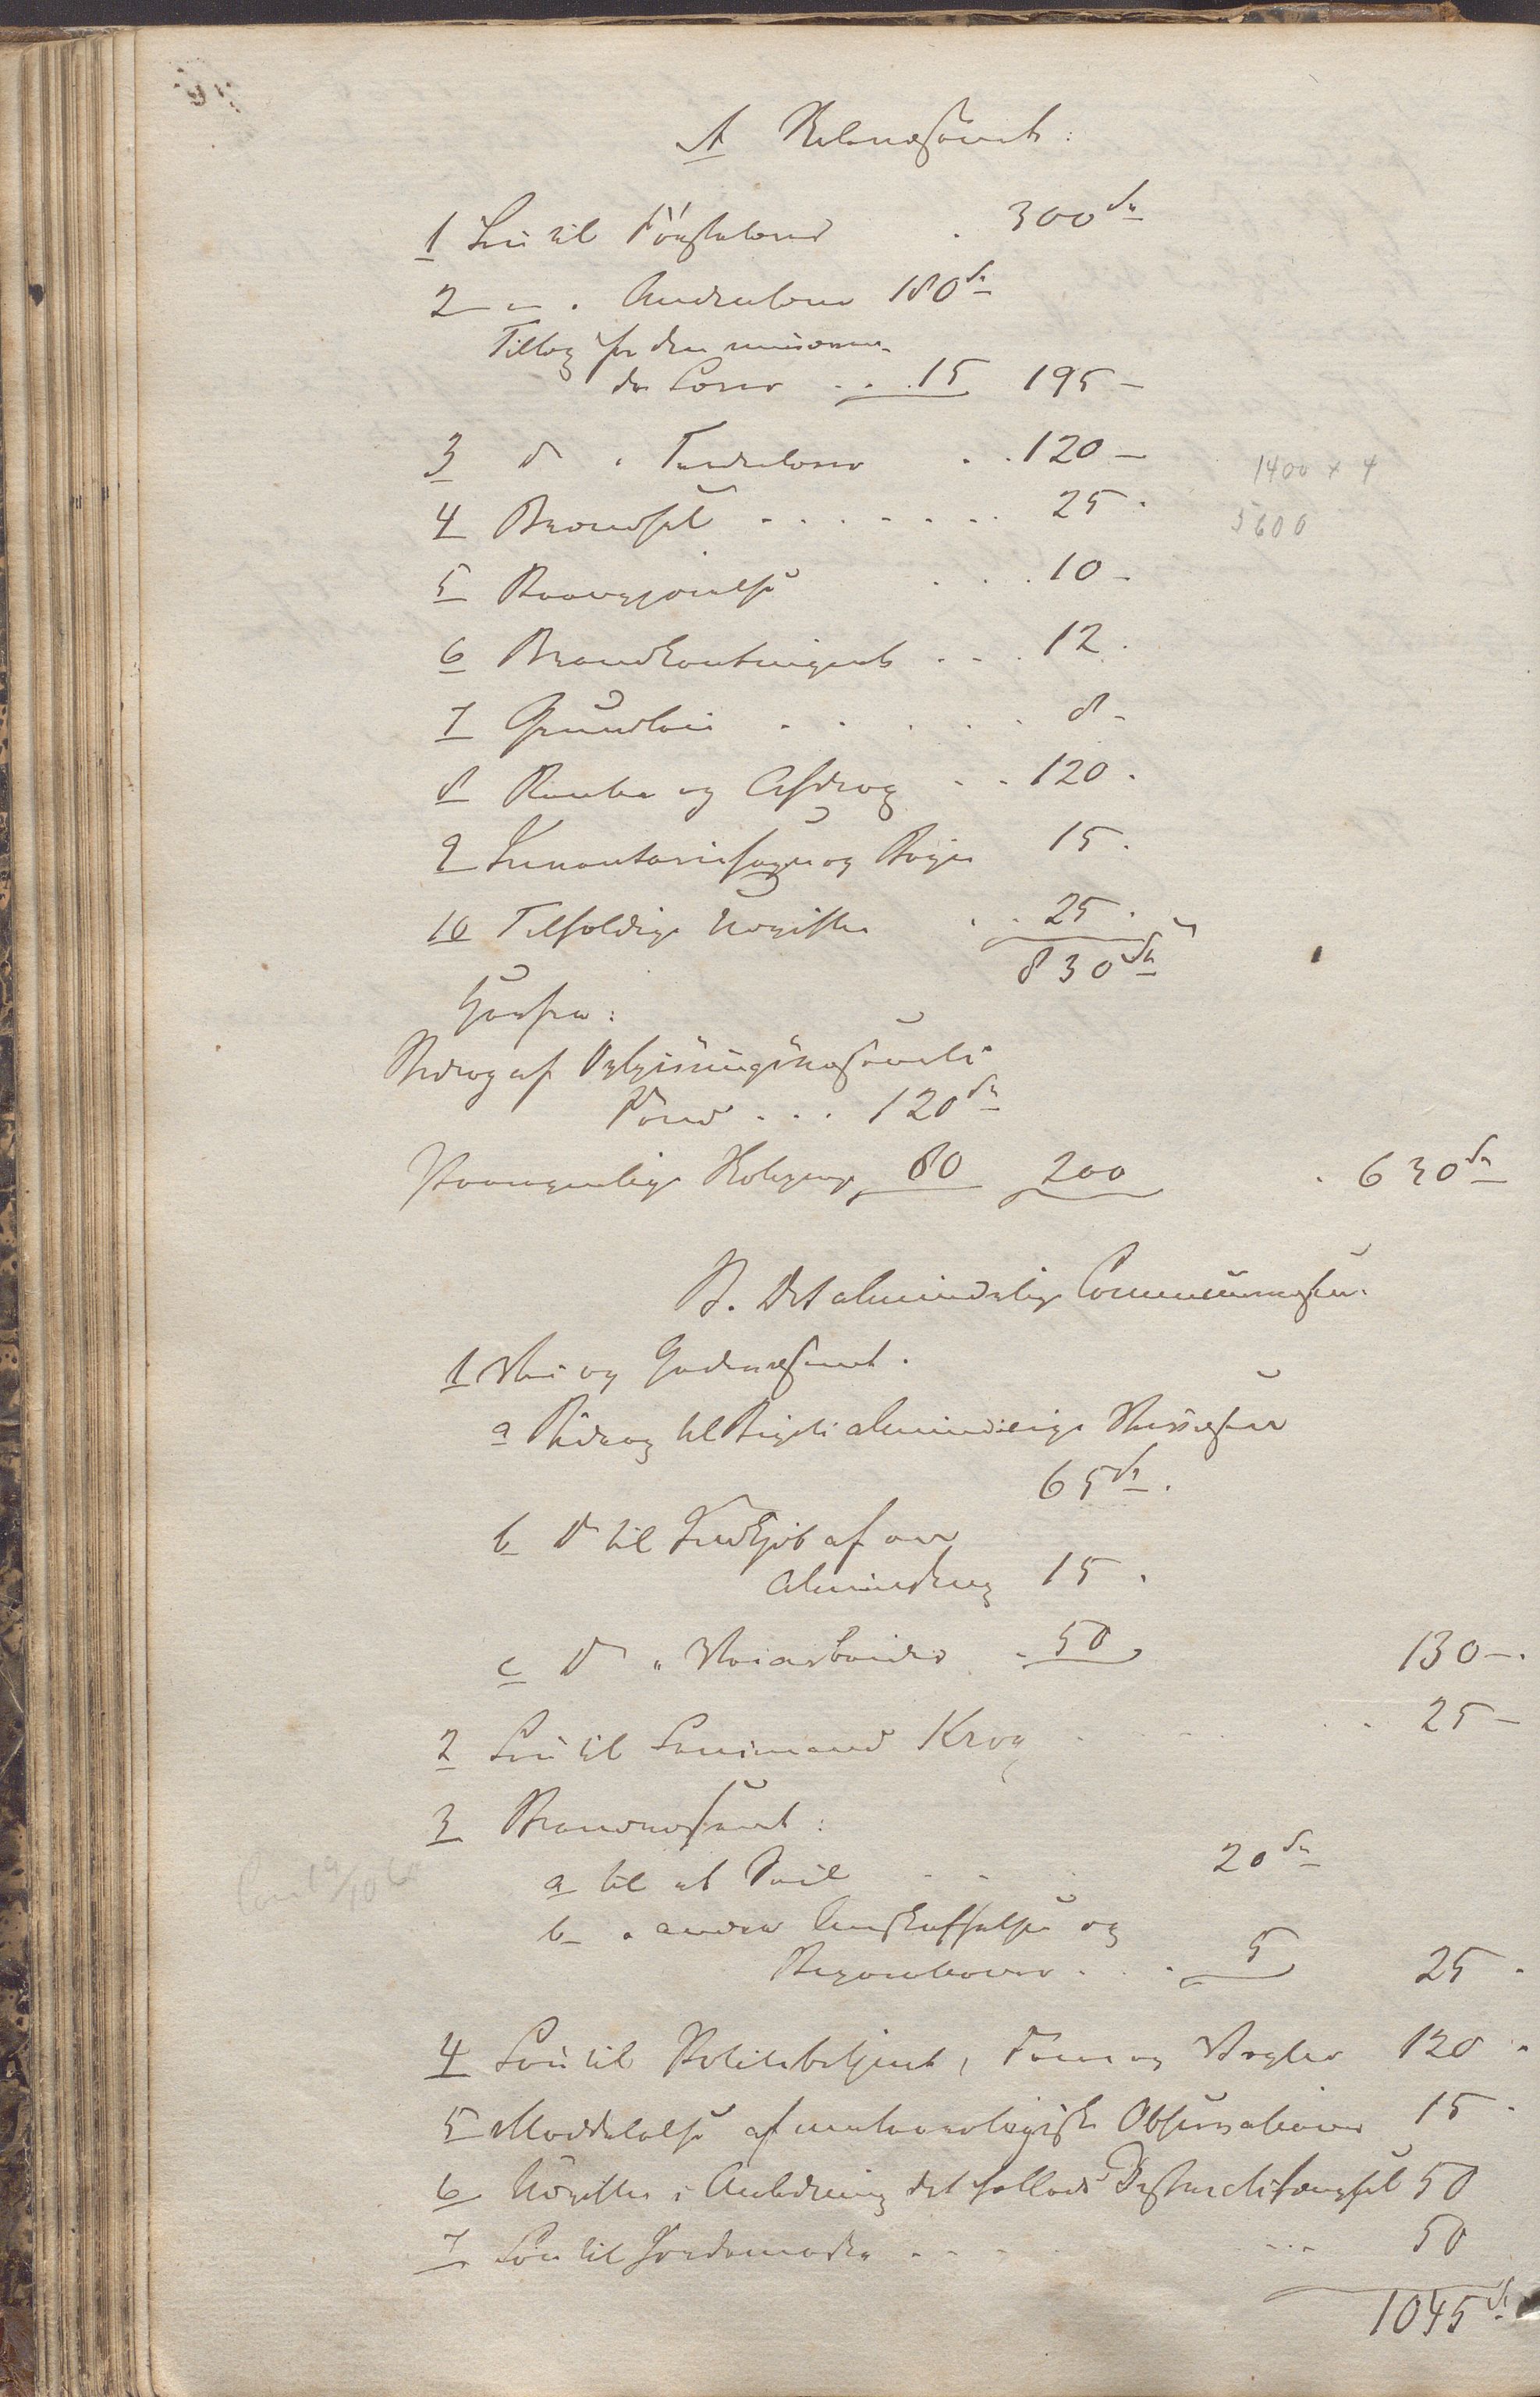 A Skolevæsenet:
1 Løn til Førstelærer . 300 Sp
2 — " . Andenlærer 180 Sp
Tillæg for den nuværen-
de Lærer . . . 15 195 —
3 do . Tredielærer . . 120 —
4 Brændsel . . . . . . . 25 .
1400 x 4
5600
5 Rengjørelse . . . 10 —
6 Brandkontingent . . . 12 .
7 Grundleie . . . . . 8 —
8 Renter og Afdrag . . 120 .
9 Inventariesager og Bøger 15 .
10 Tilfældige Udgifter . . 25 .
830 Sp
Herfra:
Bidrag af Oplysningsvæsenets
Fond . . . 120 Sp
Paaregnelige Skolepenge 80 200 . 630 Sp
B. Det almindelige Communevæsen.
1 Vei og Gadevæsenet.
a Bidrag til Byets almindelige Veivæsen
65 Sp .
b do til Indkjøb af en
Almindning 15 .
c do " Veiarbeider . 50 130 — .
2 Løn til Lensmand Krog . . . 25 —
3 Brandvæsenet:
a til et Seil . . . 20 Sp
b . andre Anskaffelser og
Reparationer . . . 5 25 .
4 Løn til Politibetjent, og Vægter 120 .
5 Meddelelse af meteorologiske Observationer 15 .
6 Udgifter i Anledning det fælleds Distriktsfængsel 50
7 Løn til Jordemoder . . . . 50
1045 Sp